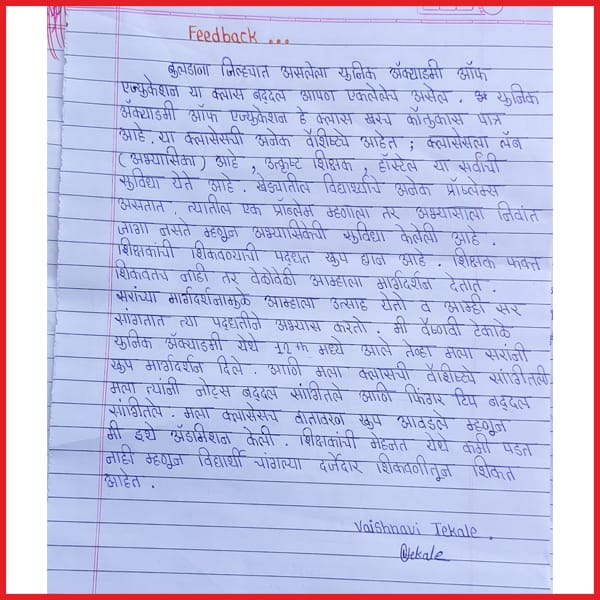 Feedback ...
बुलडाना जिल्ह्यात असलेला युनिक ॲक्याडमी ऑफ
एज्युकेशन या क्लास बद्दल आपण एकलेलेच असेल. युनिक
ॲक्याडमी ऑफ एज्युकेशन हे क्लास खरच कौतुकास पात्र
आहे. या क्लासेसची अनेक वैशिष्टचे आहेत ; क्लासेसला लॅब
(अभ्यासिका) आहे , उत्कृष्ट शिक्षक , हॉस्टेल या सर्वाची
सुविधा येते आहे . खेड्यातील विद्यार्थ्यांचे अनेक प्रॉब्लेम्स
असतात . त्यातील एक प्रॉब्लेम म्हणाला तर अभ्यासाला निवांत
जागा नसते म्हणून अभ्यासिकेची सुविधा केलेली आहे .
शिक्षकांची शिकवण्याची पद्धत खुप छान आहे . शिक्षक फक्त
शिकवतच नाही तर वेळोवेळी आम्हाला मार्गदर्शन देतात .
सरांच्या मार्गदर्शनामुळे आम्हाला उत्साह येतो व आम्ही सर
सांगतात त्या पद्धतीने अभ्यास करतो . मी वैष्णवी टेकाळे
युनिक ॲक्याडमी येथे 12th मध्ये आले तेव्हा मला सरांनी
खुप मार्गदर्शन दिले . आणि मला क्लासची वैशिष्टचे सांगितली
मला त्यांनी नोट्स बद्दल सांगितले आणि फिंगर टिप बद्दल
सांगितले . मला क्लासेसच वातावरन खुप आवडले म्हणून
मी इथे ॲडमिशन केली . शिक्षकांची मेहनत येथे कमी पडत
नाही म्हणून विद्यार्थी चांगल्या दर्जेदार शिकवणीतून शिकत
आहेत .
Vaishnavi Tekale .